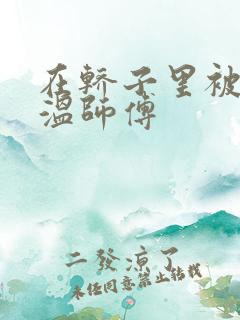 在轿子里被
温师傅
二發涼了
未经同意禁止转载